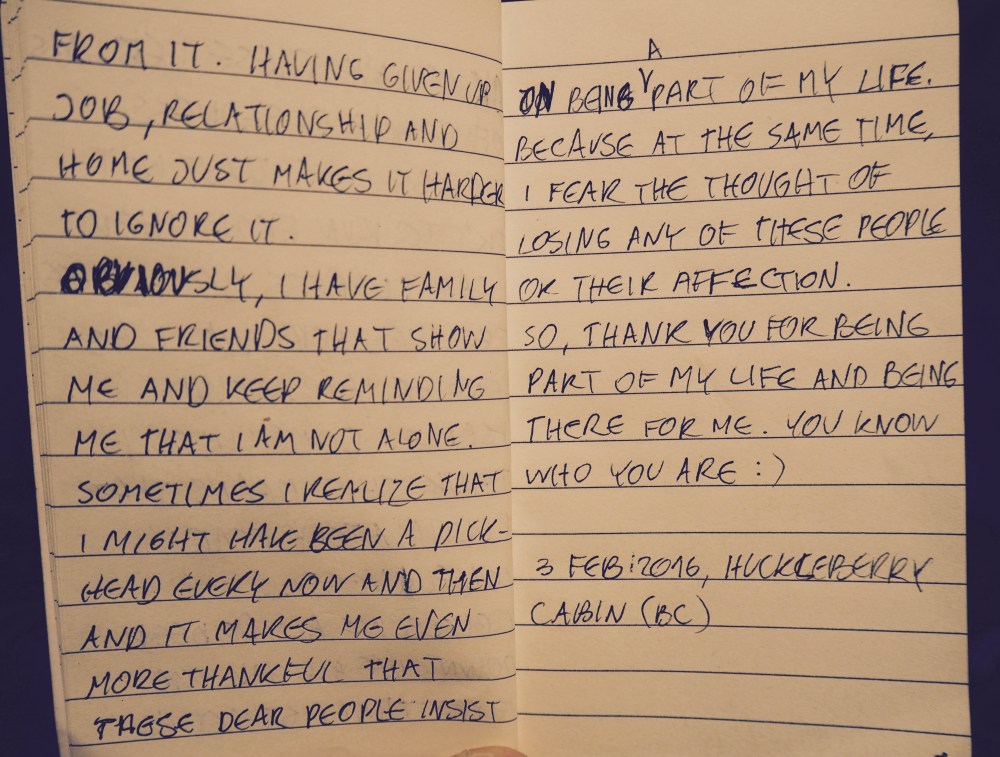 FROM IT. HAVING GIVEN UP
JOB, RELATIONSHIP AND
HOME JUST MAKES IT HARDER
TO IGNORE IT.
OBVIOUSLY, I HAVE FAMILY
AND FRIENDS THAT SHOW
ME AND KEEP REMINDING
ME THAT I AM NOT ALONE.
SOMETIMES I REALIZE THAT
I MIGHT HAVE BEEN A DICK-
HEAD EVERY NOW AND THEN
AND IT MAKES ME EVEN
MORE THANKFUL THAT
THESE DEAR PEOPLE INSIST
ON BEING A PART OF MY LIFE.
BECAUSE AT THE SAME TIME,
I FEAR THE THOUGHT OF
LOSING ANY OF THESE PEOPLE
OR THEIR AFFECTION.
SO, THANK YOU FOR BEING
PART OF MY LIFE AND BEING
THERE FOR ME. YOU KNOW
WHO YOU ARE :)
3 FEB 2016, HUCKLEBERRY
CABIN (BC)